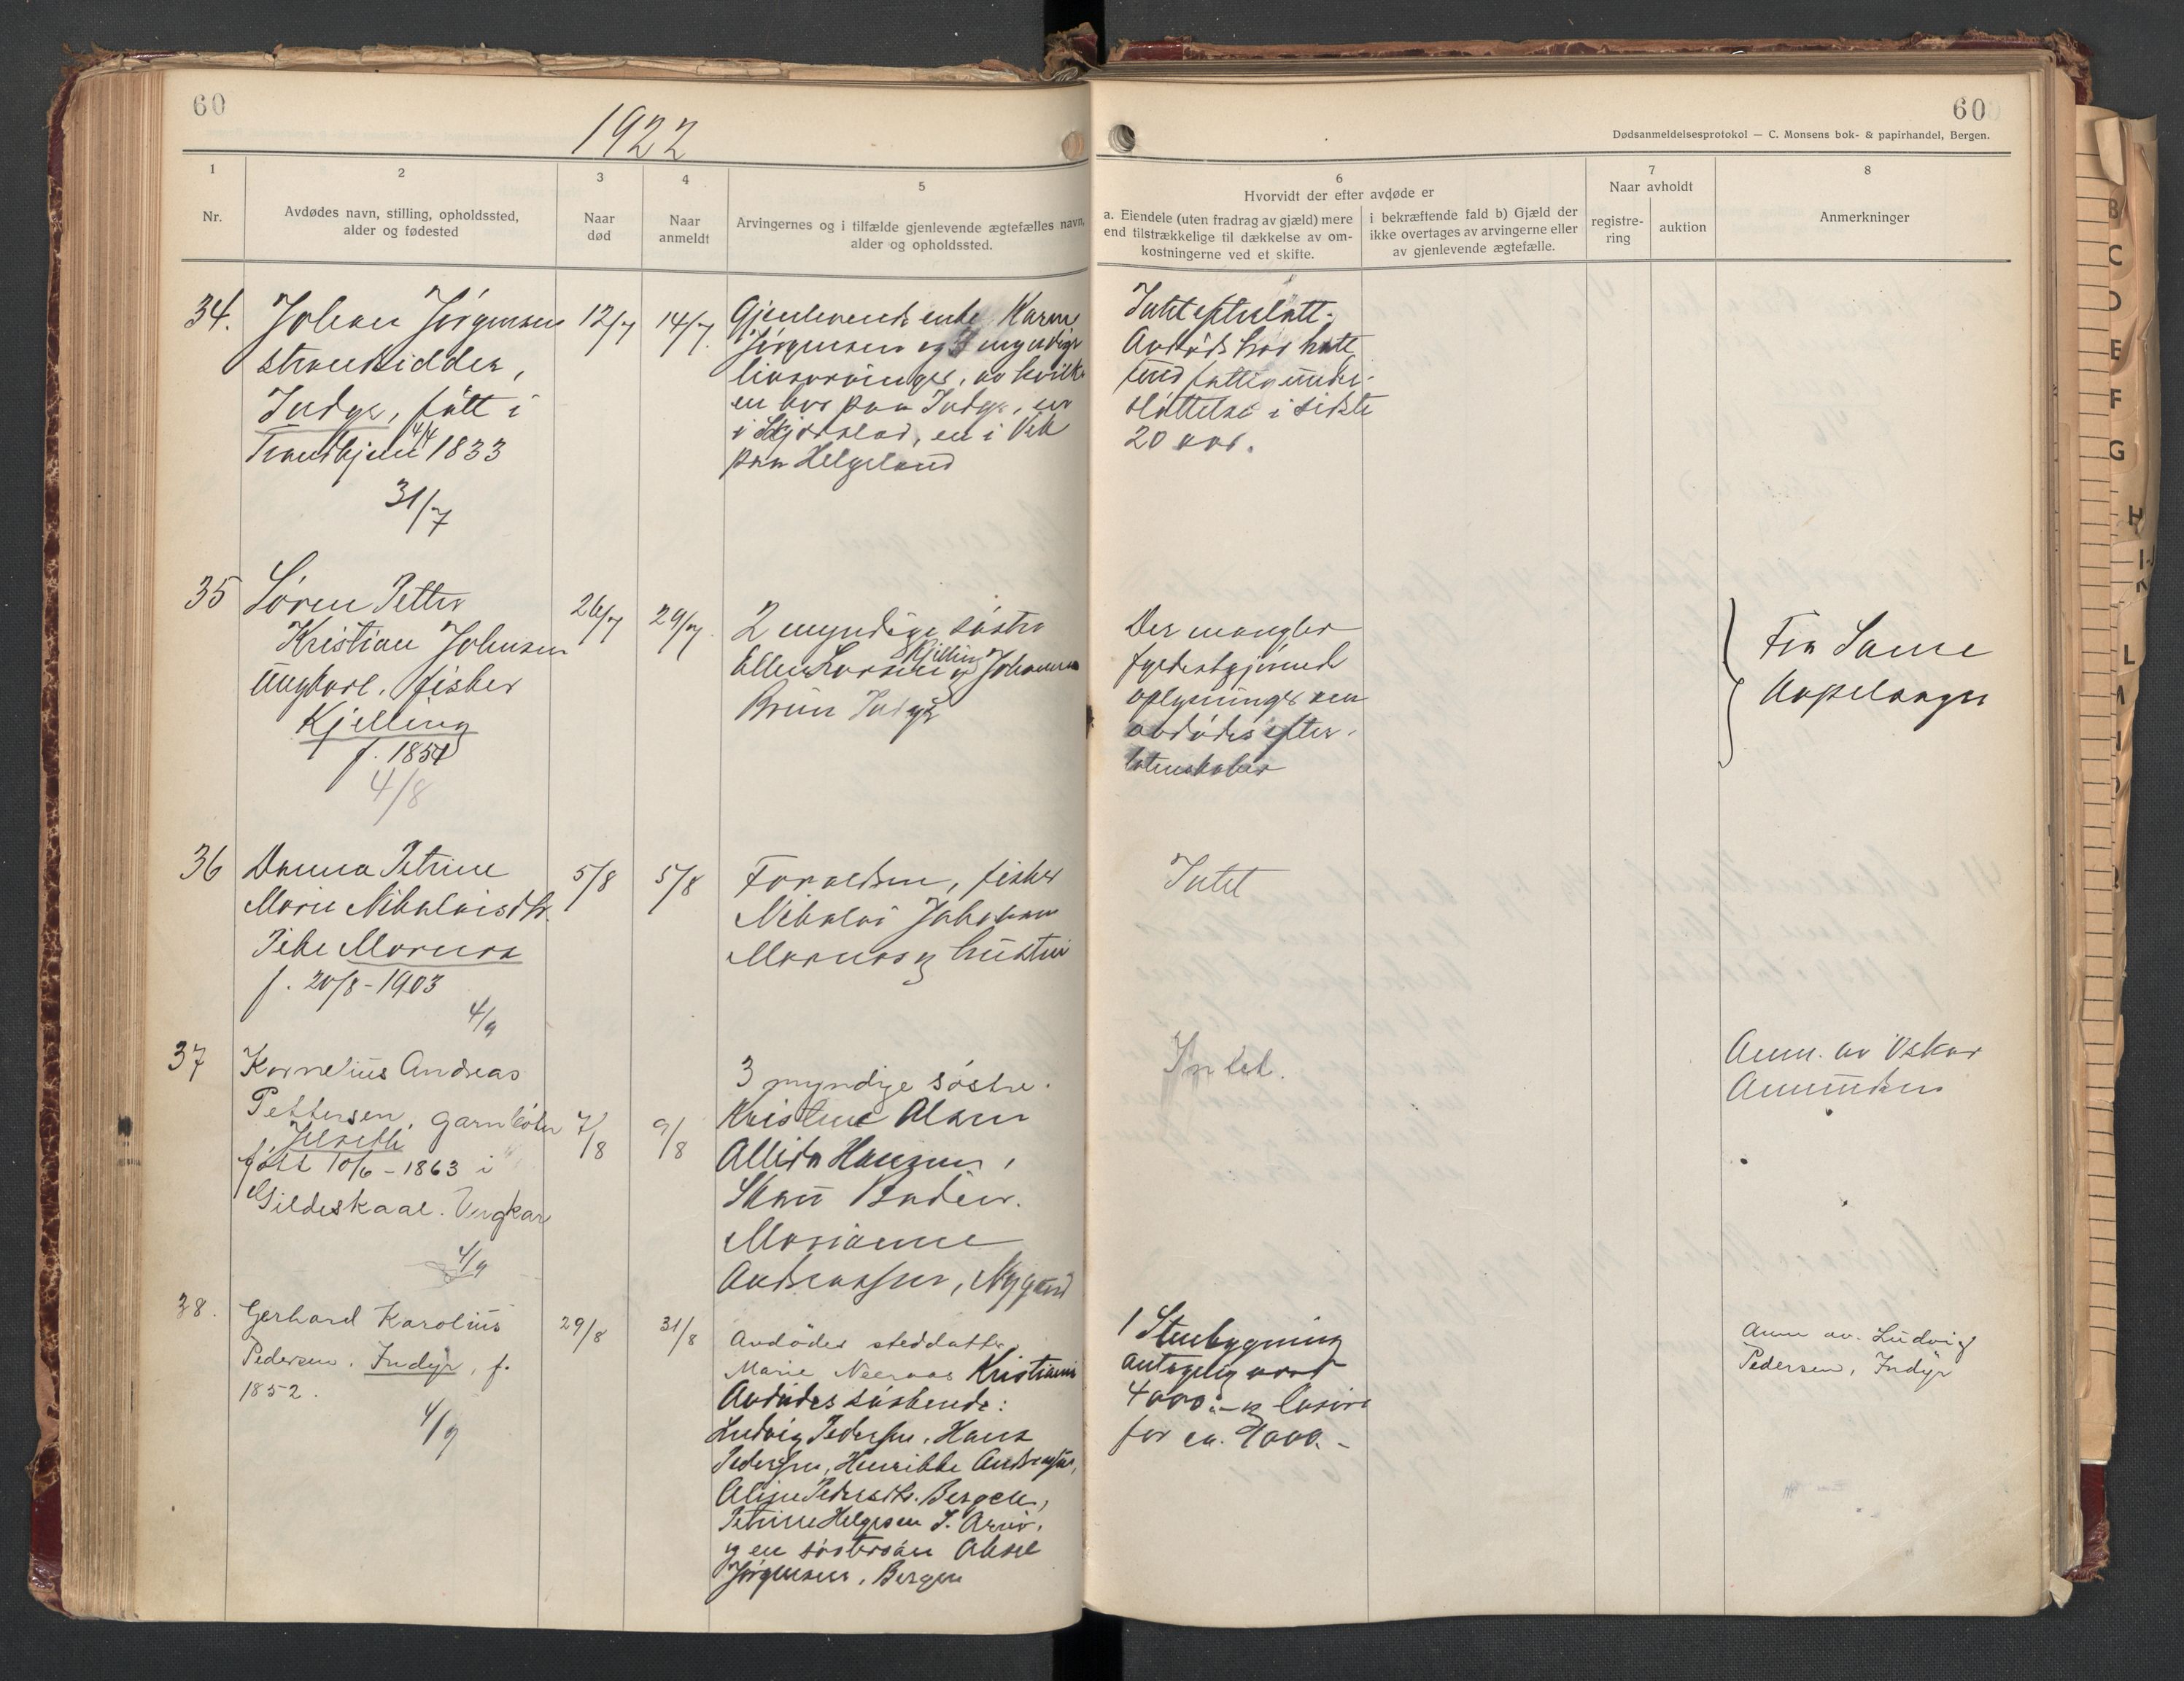 60
1922
60
Dødsanmeldelsesprotokol — C. Monsens bok- & papirhandel, Bergen.
1
Nr.
2
Avdødes navn, stilling, opholdssted,
alder og fødested
3
Naar
død
4
Naar
anmeldt
5
Arvingernes og i tilfælde gjenlevende ægtefælles navn,
alder og opholdssted.
6
Hvorvidt der efter avdøde er
a. Eiendele (uten fradrag av gjæld) mere
end tilstrækkelige til dækkelse av om-
kostningerne ved et skifte.
i bekræftende fald b) Gjæld der
ikke overtages av arvingerne eller
av gjenlevende ægtefælle.
7
Naar avholdt
registre-
ring
auktion
8
Anmerkninger
34.
Johan Jørgensen
strandsidder,
Indyr, født i
Trondhjem 4/4 1833
31/7
12/7
14/7.
Gjenlevende enke Karen
Jørgensen og 3 myndige
livsarvinger, av hvilke
en bor paa Indyr, en
i Skjerstad, en i Vik
paa Helgeland
Intet efterlatt.
Avdøde har hatt
fuld fattigunder-
støttelse i sidste
20 aar.
35
Søren Petter
Kristian Johnsen
ungkarl, fisker
Kjelling
f. 1854
4/8
26/7
29/7.
2 myndige søstre
Ellen Larsen Kjelling og Johanna
Brun Indyr
Der mangler
fyldestgjørende
oplysninger om
avdødes efter-
latenskaber
Fra Lame
Aspelanger
36
Danna Petrine
Marie Nikolaisdtr.
Pike Mornes
f. 20/8 - 1903
4/9
5/8
5/8
Foreldrene, fisker
Nikolai Johansen
Mornes og hustru
Intet
37
Kornelius Andreas
Pettersen, garnbøter
Inndyr
født 10/6 - 1863 i
Gildeskaal. Ungkar
4/9
7/8
9/8
3 myndige søstre.
Kristine Olsen
Allida Hansen,
Skau Bodin.
Marianne
Andreassen, Nygaard
Intet.
Anm. av Oskar
Amundsen
38.
Gerhard Karolius
Pedersen. Indyr, f.
1852.
4/9
29/8
31/8
Avdødes steddatter
Marie Neeraas Kristiania
Avdødes søskende:
Ludvig Pedersen, Hans
Pedersen, Henrikke Andreassen,
Aline Pedersdtr. Bergen,
Petrine Helgesen S. Arnø,
og en søstersøn Aksel
Jørgensen, Bergen
1 Stenbygning
antagelig værd
4000:- og løsøre
for ca. 1000.-
Anm av. Ludvig
Pedersen, Indyr
B
C
D
E
F
G
H
I
K
L